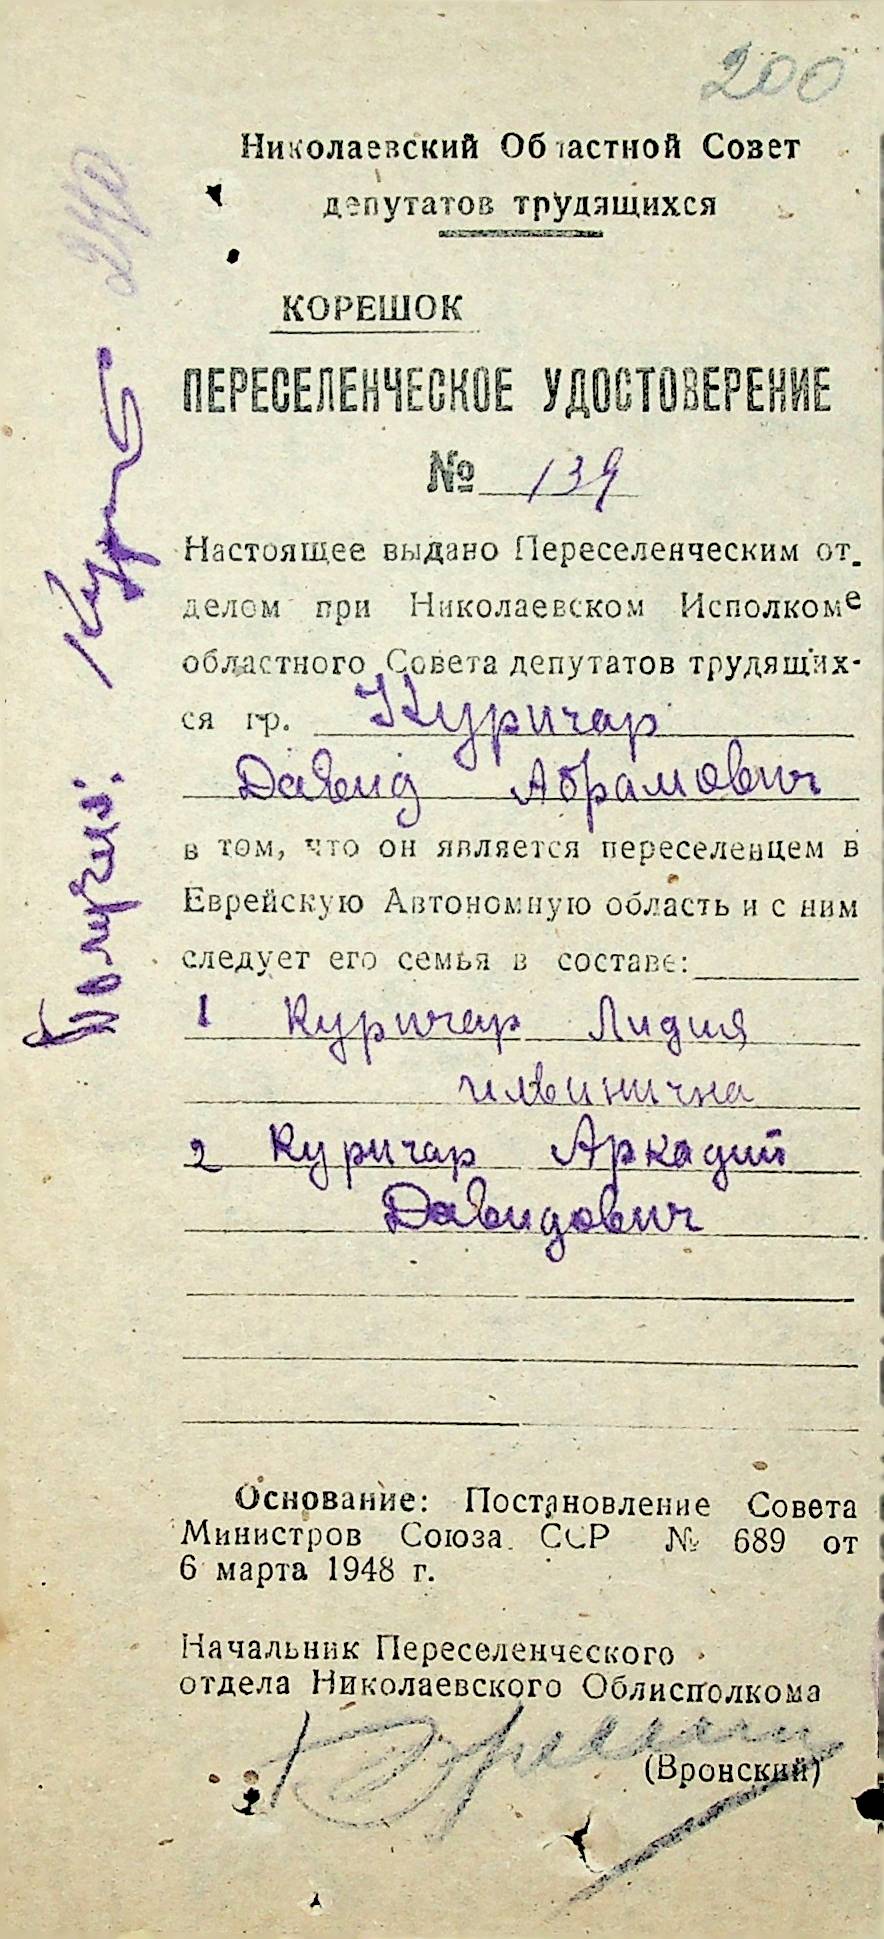 200
Николаевский Областной Совет
депутатов трудящихся
240
КОРЕШОК
ПЕРЕСЕЛЕНЧЕСКОЕ УДОСТОВЕРЕНИЕ
№ 139
Настоящее выдано Переселенческим от-
делом при Николаевском Исполкоме
областного Совета депутатов трудящих-
ся гр. Куричар
Давид Абрамович
в том, что он является переселенцем в
Еврейскую Автономную область и с ним
следует его семья в составе:
1 Куричар Лидия
2 Куричар Аркадий
Давидович
Получил:
Основание: Постановление Совета
Министров Союза ССР № 689 от
6 марта 1948 г.
Начальник Переселенческого
отдела Николаевского Облисполкома
(Вронский)